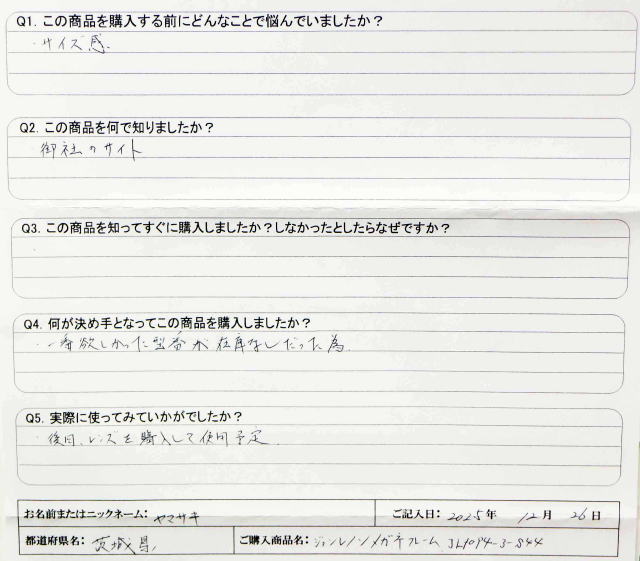 Q1. この商品を購入する前にどんなことで悩んでいましたか？
・サイズ感
Q2. この商品を何で知りましたか？
・御社のサイト
Q3. この商品を知ってすぐに購入しましたか？しなかったとしたらなぜですか？
・
Q4. 何が決め手となってこの商品を購入しましたか？
・一番欲しかった型番が在庫なしだった為
Q5. 実際に使ってみていかがでしたか？
・後日、レンズを購入して使用予定
お名前またはニックネーム： ヤマサキ ご記入日： 2025年 12月 26日
都道府県名： 茨城県 ご購入商品名： ジョンレノンメガネフレーム JL1094-3-S44